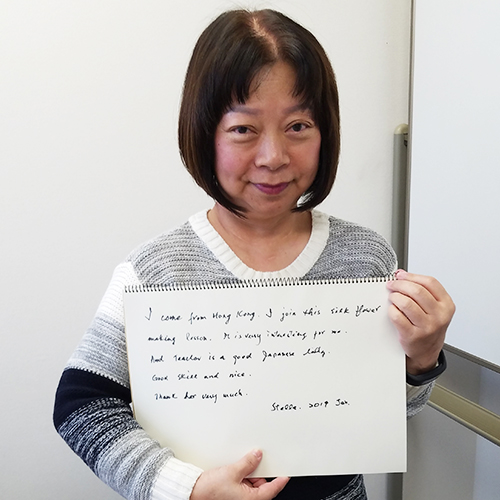 I come from Hong Kong. I join this silk flower
making lesson. It is very interesting for me.
And teacher is a good Japanese lady.
Good skill and nice.
Thank her very much.
Stella. 2019 Jan.